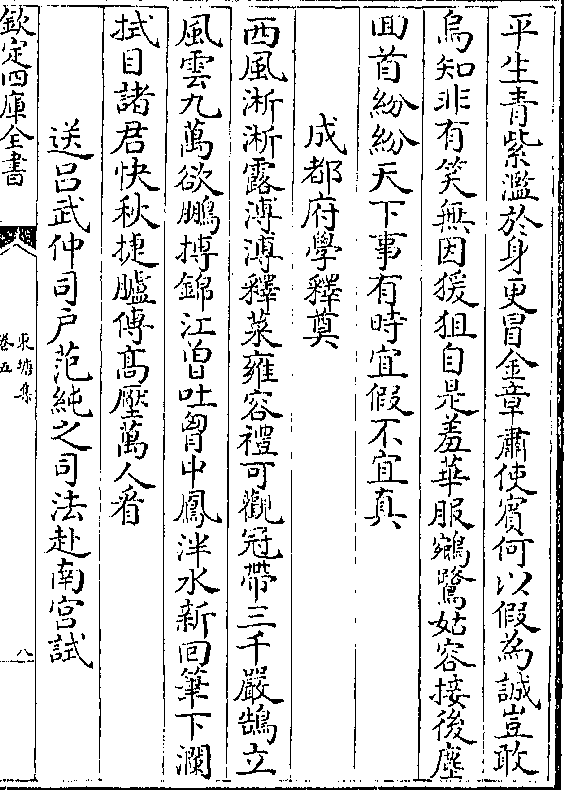 平生青紫濫於身更冒金章肅使賓何以假為誠豈敢
烏知非有笑無因猨狙自是羞華服鵷鷺姑容接後塵
囬首紛紛天下事有時宜假不宜真
成都府學釋奠
西風淅淅露漙漙釋菜雍容禮可觀冠帶三千嚴鵠立
風雲九萬欲鵬摶錦江曾吐胷中鳳泮水新回筆下瀾
拭目諸君快秋捷臚傳髙壓萬人看
送吕武仲司户范純之司法赴南宫試
欽定四庫全書
東塘集
卷五
八